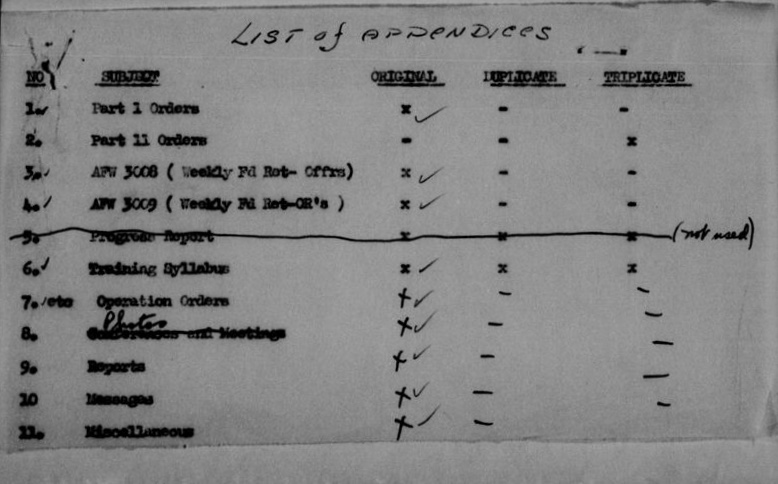 LIST of APPENDICES
NO SUBJECT ORIGINAL DUPLICATE TRIPLICATE
1. Part 1 Orders x ✓ - -
2. Part 11 Orders - - x
3. AFW 3008 ( Weekly Fd Ret- Offrs) x ✓ - -
4. AFW 3009 ( Weekly Fd Ret-OR's ) x ✓ - -
5. Progress Report x x x (not used)
6. Training Syllabus x ✓ x x
7. etc Operation Orders x ✓ - -
Photos
8. Conferences and Meetings x ✓ - -
9. Reports x ✓ - -
10 Messages x ✓ - -
11. Miscellaneous x ✓ - -